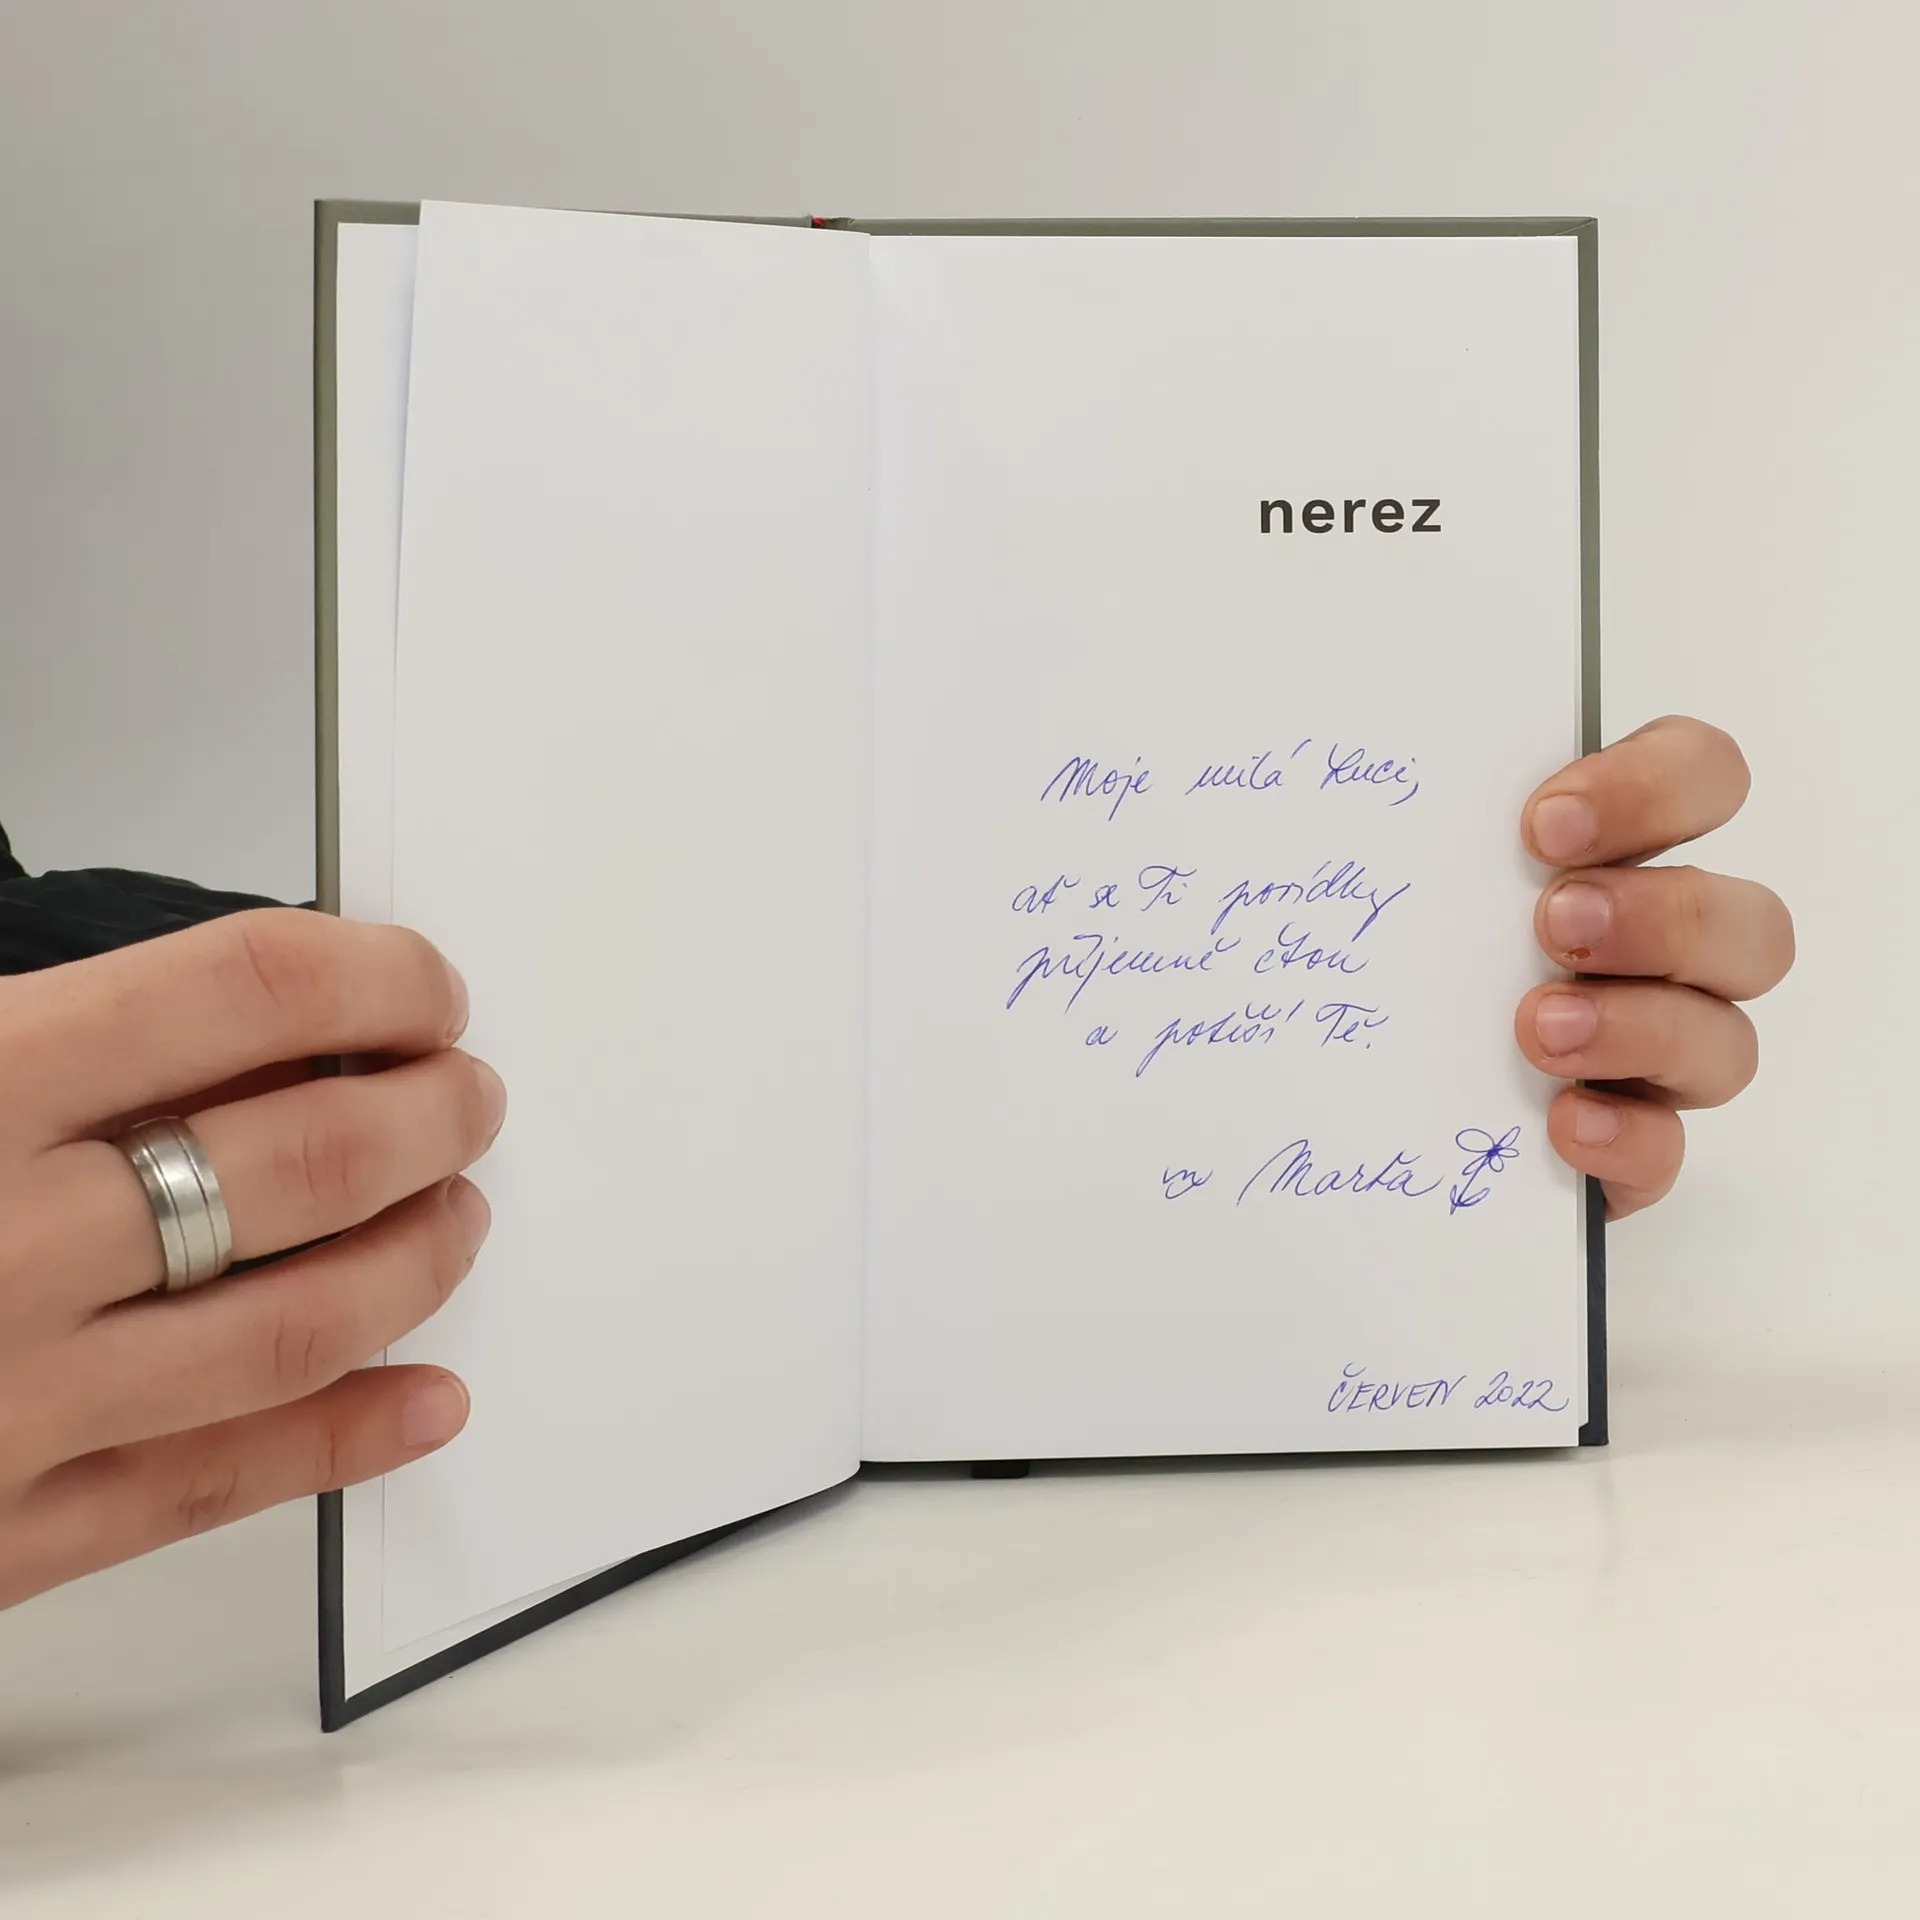 nerez
Moje milá Luci,
ať se Ti povídky
příjemně čtou
a potěší Tě.
Marťa
ČERVEN 2022